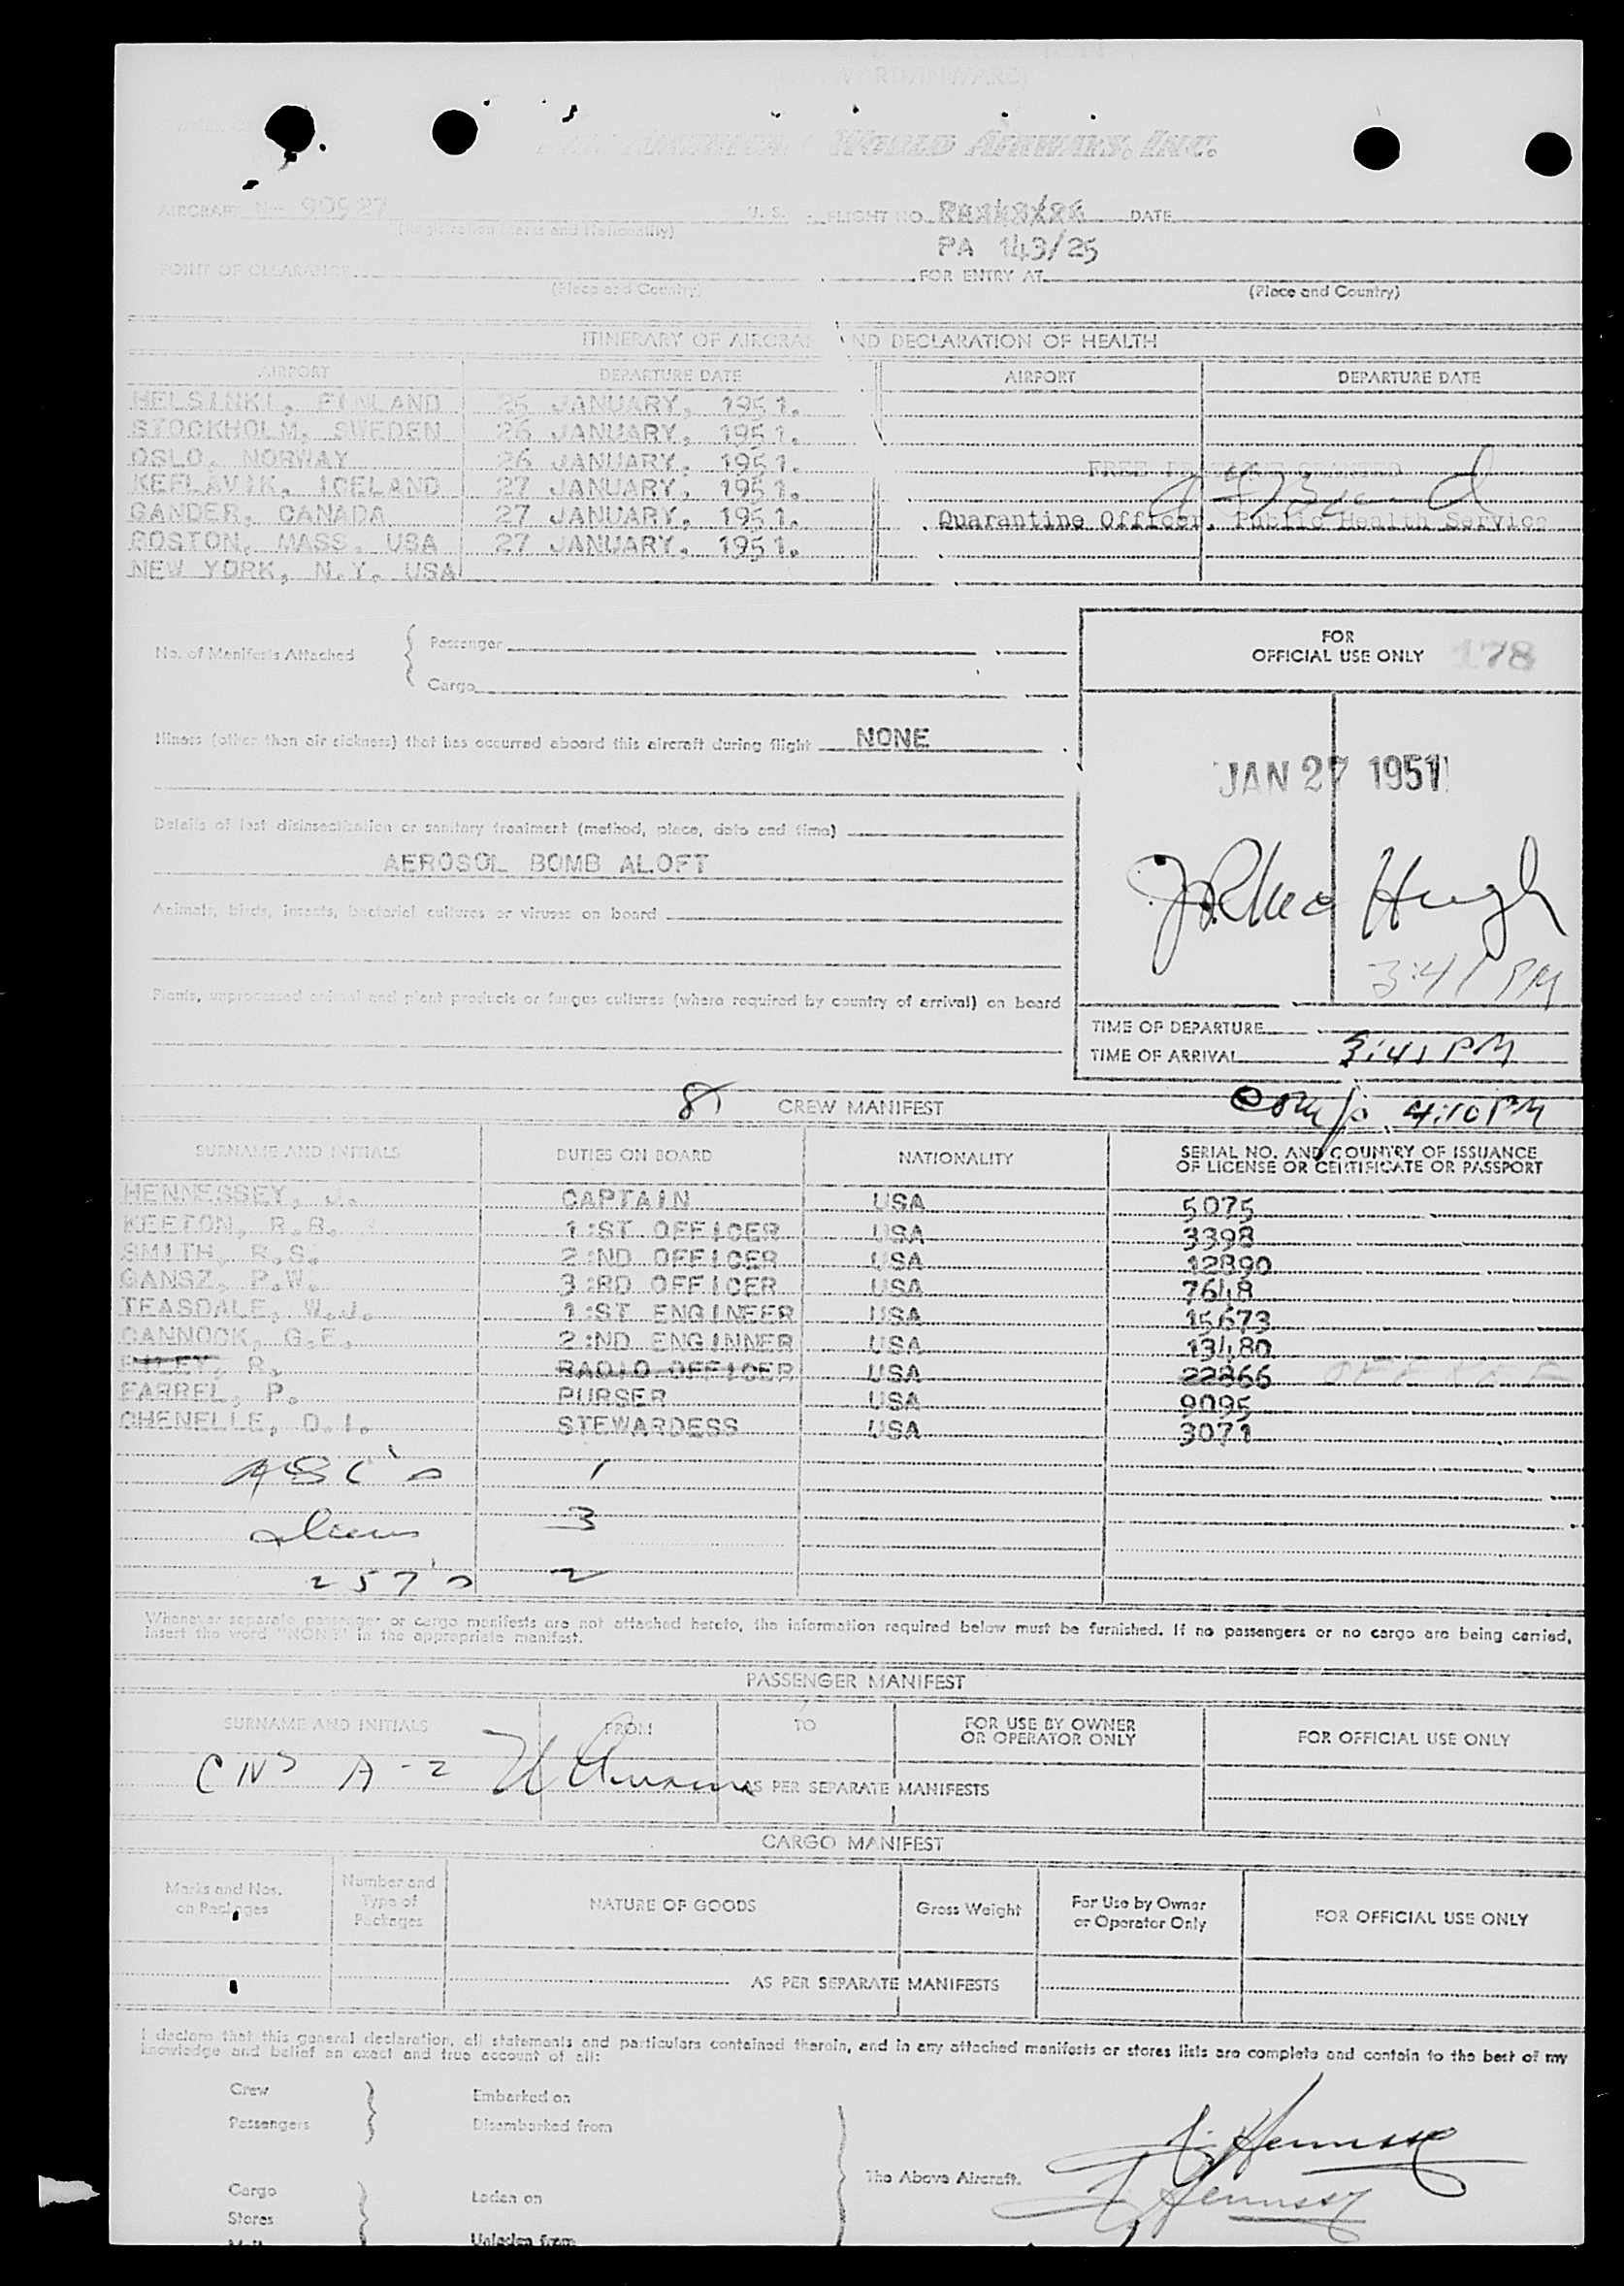 WORLD AIRWAYS, INC.
AIRCRAFT 90927 U. S. FLIGHT NO. DATE
(Registration Marks and Nationality)
PA 143/25
POINT OF CLEARANCE FOR ENTRY AT
(Place and Country) (Place and Country)
ITINERARY OF AIRCRA ND DECLARATION OF HEALTH
AIRPORT DEPARTURE DATE AIRPORT DEPARTURE DATE
HELSINKI, FINLAND 25 JANUARY, 1951.
STOCKHOLM, SWEDEN 26 JANUARY, 1951.
OSLO, NORWAY 26 JANUARY, 1951.
FREE GRANTED
KEFLAVIK, ICELAND 27 JANUARY, 1951.
GANDER, CANADA 27 JANUARY, 1951.
Quarantine Officer, Public Health Service
BOSTON, MASS. USA 27 JANUARY, 1951.
NEW YORK, N.Y. USA
No. of Manifests Attached
Passenger
Cargo
FOR
OFFICIAL USE ONLY 178
Illness (other than air sickness) that has occurred aboard this aircraft during flight NONE
JAN 27 1951
Details of last disinsectization or sanitary treatment (method, place, date and time)
AEROSOL BOMB ALOFT
Animals, birds, insects, bacterial cultures or viruses on board
Hugh
3:41 PM
Plants, unprocessed animal and plant products or fungus cultures (where required by country of arrival) on board
TIME OF DEPARTURE
TIME OF ARRIVAL 3:41 PM
8 CREW MANIFEST Comp. 4:10 PM
SURNAME AND INITIALS DUTIES ON BOARD NATIONALITY SERIAL NO. AND COUNTRY OF ISSUANCE
OF LICENSE OR CERTIFICATE OR PASSPORT
HENNESSEY, J. CAPTAIN USA 5075
KEETON, R.B. 1:ST OFFICER USA 3398
SMITH, R.S. 2:ND OFFICER USA 12890
GANSZ, P.W. 3:RD OFFICER USA 7648
TEASDALE, W.J. 1:ST ENGINEER USA 15673
CANNOCK, G.E. 2:ND ENGINNER USA 13480
R. RADIO OFFICER USA 22866
FARREL, P. PURSER USA 9095
CHENELLE, D.I. STEWARDESS USA 3071
USC's 1
Aliens 3
257's 2
Whenever separate passenger or cargo manifests are not attached hereto, the information required below must be furnished. If no passengers or no cargo are being carried,
insert the word "NONE" in the appropriate manifest.
PASSENGER MANIFEST
SURNAME AND INITIALS FROM TO FOR USE BY OWNER
OR OPERATOR ONLY FOR OFFICIAL USE ONLY
A-2
AS PER SEPARATE MANIFESTS
CARGO MANIFEST
Marks and Nos.
on Packages Number and
Type of
Packages NATURE OF GOODS Gross Weight For Use by Owner
or Operator Only FOR OFFICIAL USE ONLY
AS PER SEPARATE MANIFESTS
I declare that this general declaration, all statements and particulars contained therein, and in any attached manifests or stores lists are complete and contain to the best of my
knowledge and belief an exact and true account of all:
Crew Embarked on
Passengers Disembarked from
J. Hennessy
The Above Aircraft.
Cargo Laden on
J Hennessy
Stores
Mail Unladen from